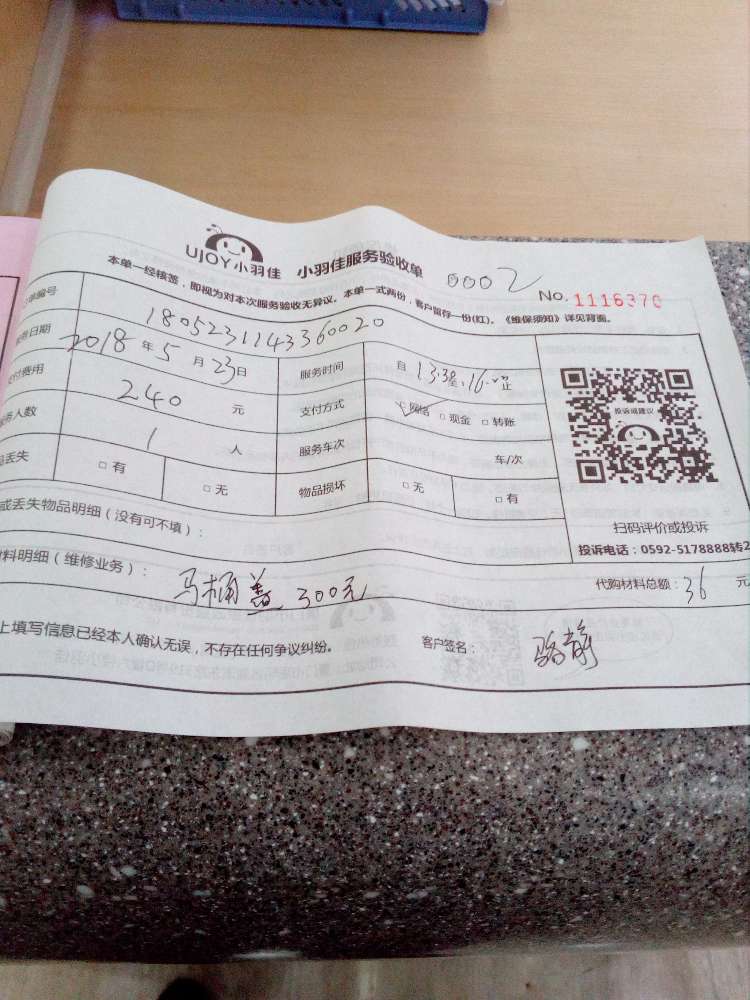 UJOY小羽佳 小羽佳服务验收单 0002
NO. 1116370
本单一经核签，即视为对本次服务验收无异议。本单一式两份，客户留存一份(红)。《维保须知》详见背面。
单编号 1805231143360020
务日期 2018年5月23日 服务时间 自13:38至16:00止
付费用 240元 支付方式 网络 □现金 □转账
务人数 1人 服务车次 车/次
品丢失 □有 □无 物品损坏 □无 □有
投诉或建议
扫码评价或投诉
投诉电话：0592-5178888转2
或丢失物品明细（没有可不填）：
材料明细（维修业务）： 马桶盖 300元 代购材料总额：36元
上填写信息已经本人确认无误，不存在任何争议纠纷。 客户签名： 骆静